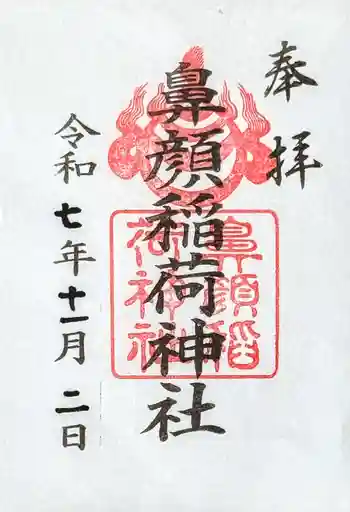 奉拝
鼻顔稲荷神社
鼻顔稲荷神社
令和七年十一月二日